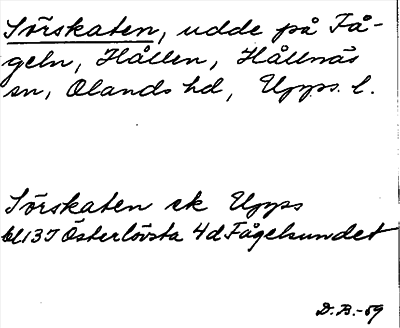 Sörskaten, udde på Få-
geln, Hållen, Hållnäs
sn, Olands hd, Upps. l.
Sörskaten ek Upps
bl 137 Österlövsta 4d Fågelsundet
D.B.-59